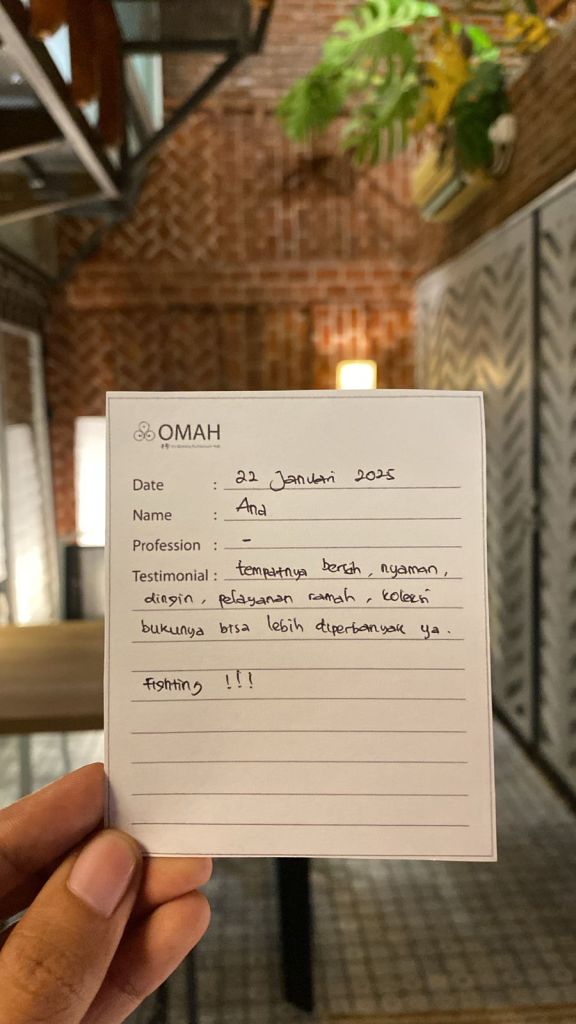 OMAH
Date : 22 Januari 2025
Name : Ana
Profession : -
Testimonial : tempatnya bersih, nyaman,
dingin, pelayanan ramah, koleksi
bukunya bisa lebih diperbanyak ya.
Fighting !!!